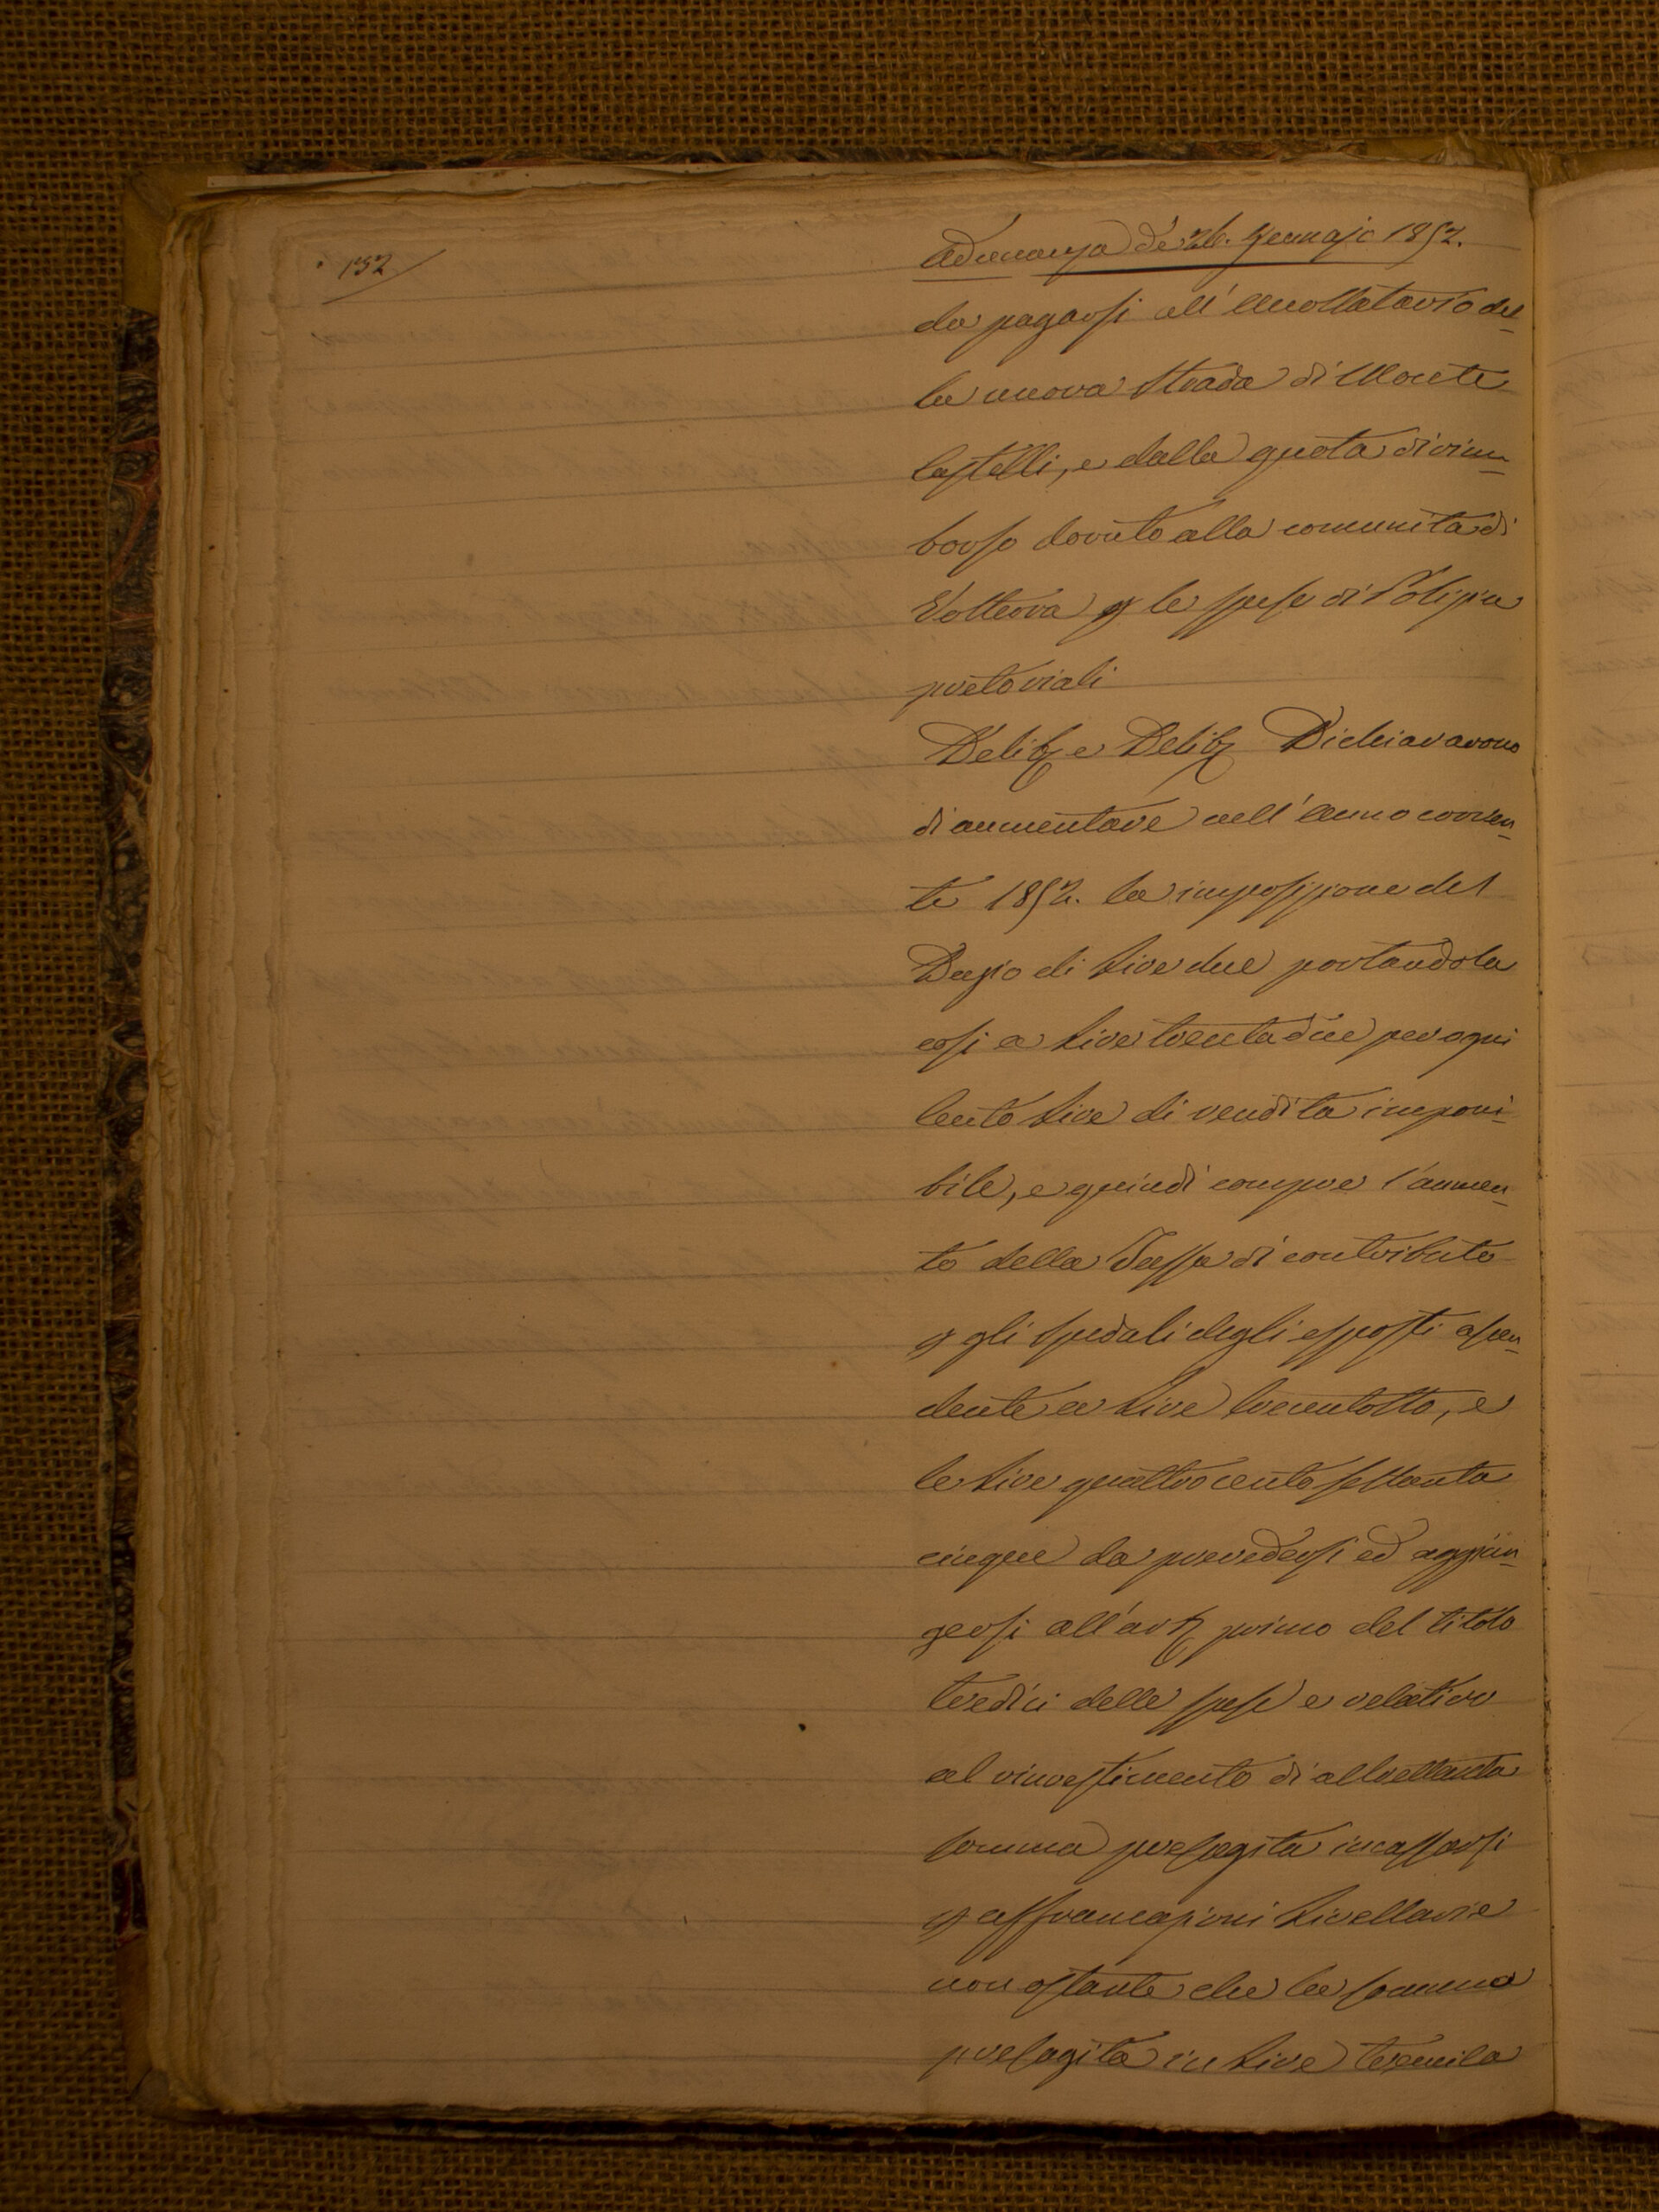 132
Adunanza de 26. Gennajo 1852.
da pagarsi all'Accollatario del-
la nuova strada di Monte
Castelli, e dalla quota di rim-
borso dovuto alla comunità di
Volterra p le spese di Polizia
pretoriali
Delib e Delib Dichiararono
di aumentare nell'Anno corren-
te 1852. la imposizione del
Dazio di Lire due portandola
così a Lire trentadue per ogni
Cento Lire di rendita imponi-
bile, e quindi compre l'aumen-
to della Tassa di contributo
p gli Spedali degli esposti ascen-
dente a Lire trecentotto, e
le Lire quattrocento settanta
cinque da prevedersi ed aggiun-
gersi all'art primo del titolo
tredici delle spese e relativo
al rinvestimento di altrettanta
somma presagita incassarsi
p affrancazioni Livellarie
non ostante che la somma
presagita in Lire tremila